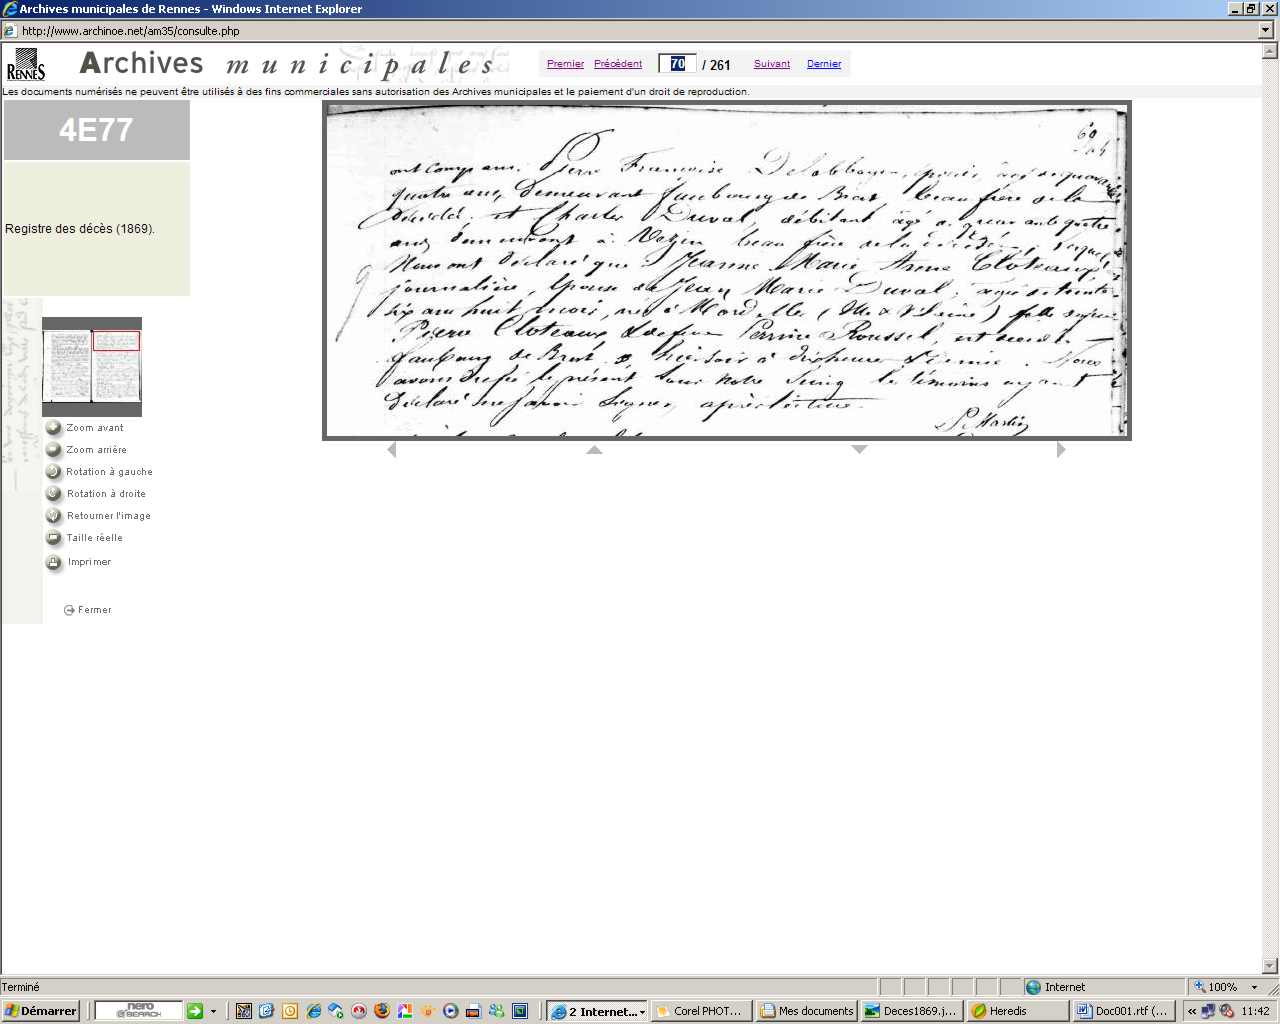 Archives municipales de Rennes - Windows Internet Explorer
http://www.archinoe.net/am35/consulte.php
RENNES
Archives municipales
Premier Précédent 70 / 261 Suivant Dernier
Les documents numérisés ne peuvent être utilisés à des fins commerciales sans autorisation des Archives municipales et le paiement d'un droit de reproduction.
4E77
Registre des décès (1869).
60
ont comparu. Pierre Francoise agé de quarante
quatre ans, demeurant faubourg de Brest, beau frère de la
décédée. et Charles Duval, débitant âgé de quarante quatre
ans demeurant à Vezin beau frère de la décédée; lesquels
Nous ont déclaré que Jeanne Marie Anne Cloteaux,
journalière, épouse de Jean Marie Duval, agée de trente
six ans huit mois, née à Mordelles (Ille & Vilaine) fille de feu
Pierre Cloteaux & de feue Perrine Roussel, est décédée
faubourg de Brest, hier soir à dix heures & demie. Nous
avons dressé le présent sous notre seing les témoins ayant
déclaré ne savoir signer, après lecture.
Zoom avant
Zoom arrière
Rotation à gauche
Rotation à droite
Retourner l'image
Taille réelle
Imprimer
Fermer
Terminé
Internet
100%
Démarrer
nero SEARCH
2 Internet...
Corel PHOT...
Mes documents
Deces1869.j...
Heredis
Doc001.rtf (...
11:42